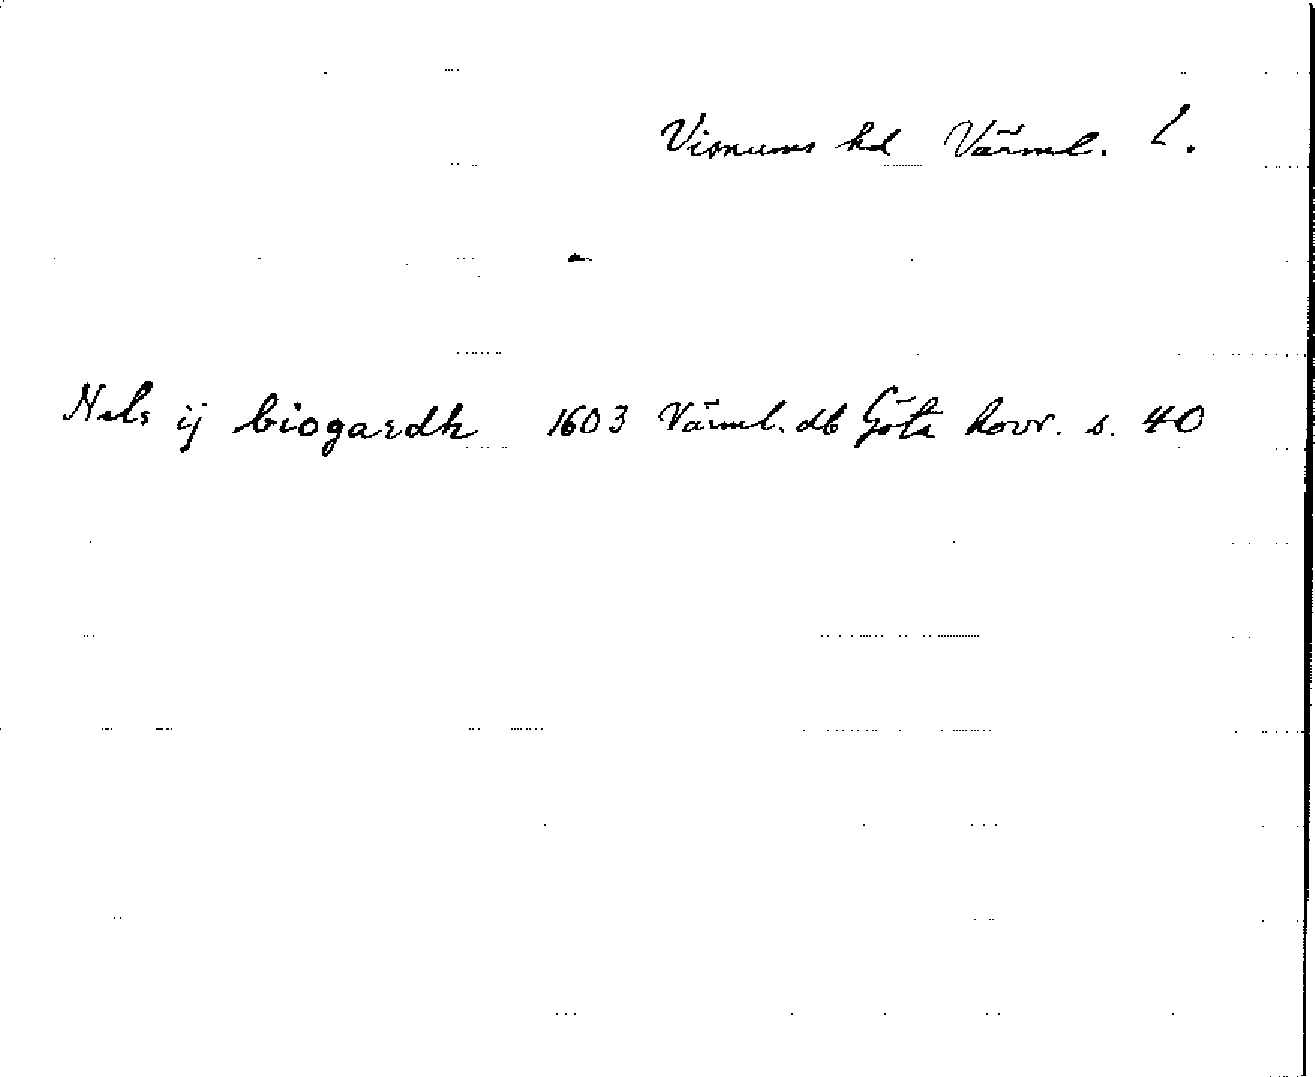 Visnums hd Värml. L.
Nels ij biogardh 1603 Värml. db Göta hovr. s. 40